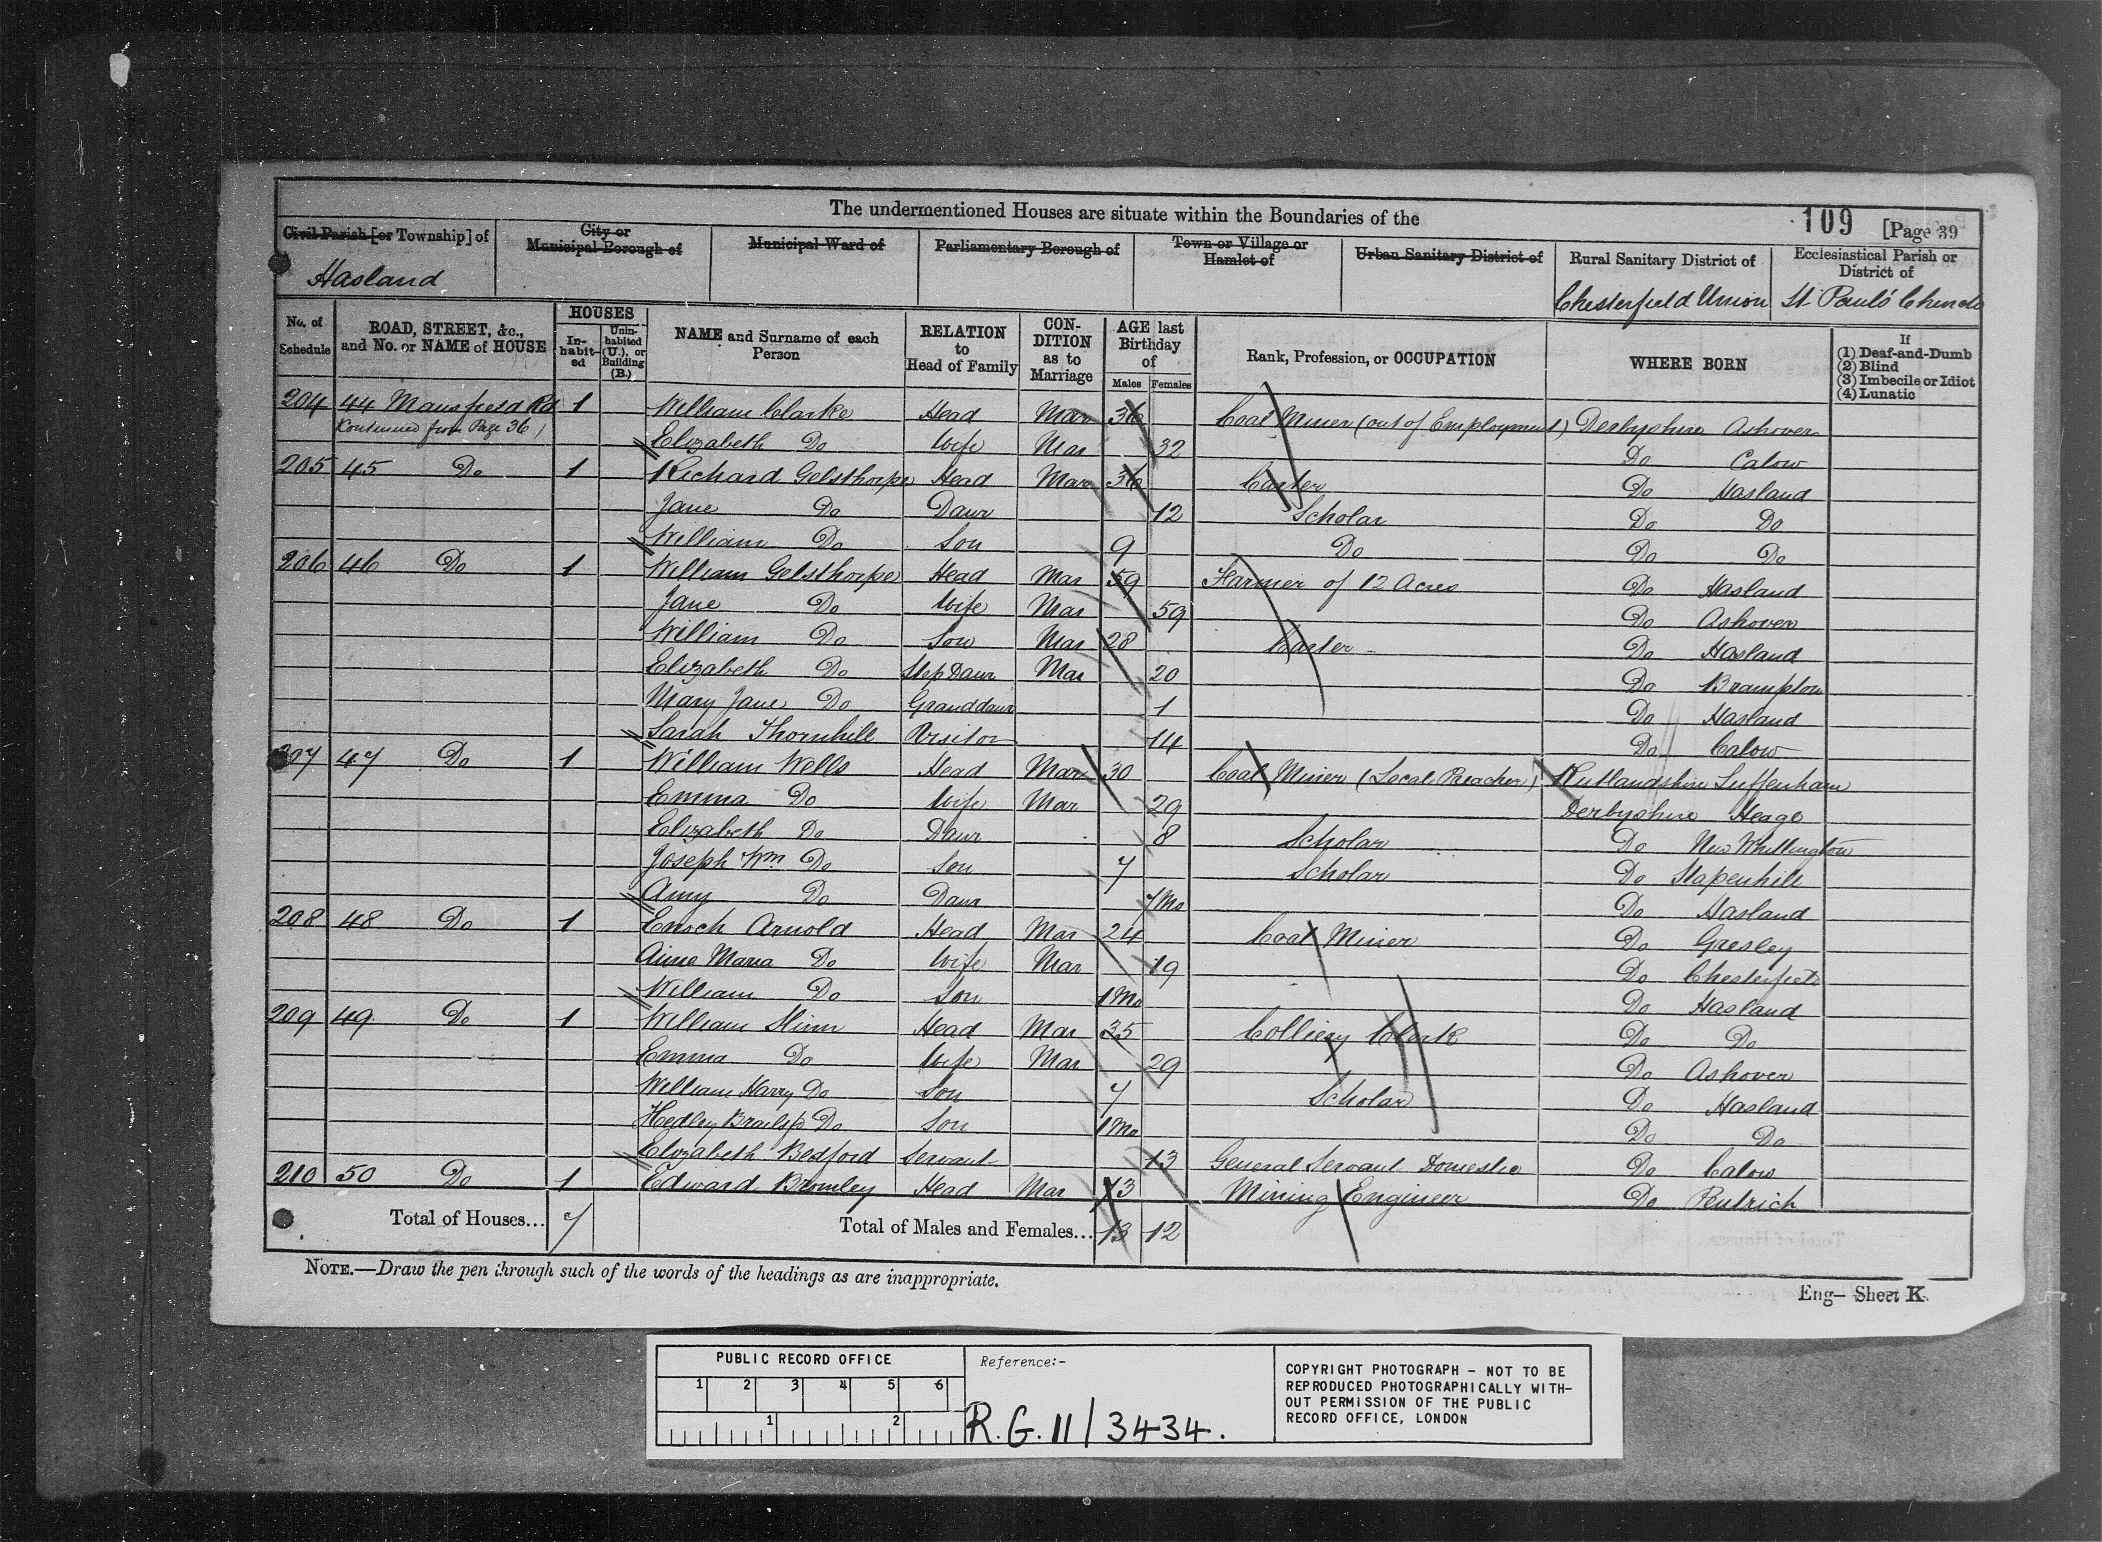 The undermentioned Houses are situate within the Boundaries of the
109 [Page 39
Civil Parish [or Township] of
City or Municipal Borough of
Municipal Ward of
Parliamentary Borough of
Town or Village or Hamlet of
Urban Sanitary District of
Rural Sanitary District of
Ecclesiastical Parish or District of
Hasland Chesterfield Union St. Paul's Church
No. of Schedule
ROAD, STREET, &c., and No. or NAME of HOUSE
HOUSES
In-habit-ed
Unin-habited (U.), or Building (B.)
NAME and Surname of each Person
RELATION to Head of Family
CON-DITION as to Marriage
AGE last Birthday of
Males Females
Rank, Profession, or OCCUPATION
WHERE BORN
If
(1) Deaf-and-Dumb
(2) Blind
(3) Imbecile or Idiot
(4) Lunatic
204 44 Mansfield Rd 1 William Clarke Head Mar 36 Coal Miner (out of Employment) Derbyshire Ashover
Continued from Page 36) Elizabeth Do Wife Mar 32 Do Calow
205 45 Do 1 Richard Gelsthorpe Head Mar 36 Carter Do Hasland
Jane Do Daur 12 Scholar Do Do
William Do Son 9 Do Do Do
206 46 Do 1 William Gelsthorpe Head Mar 59 Farmer of 12 Acres Do Hasland
Jane Do Wife Mar 59 Do Ashover
William Do Son Mar 28 Carter Do Hasland
Elizabeth Do Step Daur Mar 20 Do Brampton
Mary Jane Do Granddaur 1 Do Hasland
Sarah Thornhill Visitor 14 Do Calow
207 47 Do 1 William Wells Head Mar 30 Coal Miner (Local Preacher) Rutlandshire Luffenham
Emma Do Wife Mar 29 Derbyshire Heage
Elizabeth Do Daur 8 Scholar Do New Whittington
Joseph Wm Do Son 7 Scholar Do Stapenhill
Amy Do Daur 7 Mo Do Hasland
208 48 Do 1 Enoch Arnold Head Mar 24 Coal Miner Do Gresley
Maria Do Wife Mar 19 Do Chesterfield
William Do Son 1 Mo Do Hasland
209 49 Do 1 William Head Mar 35 Colliery Clerk Do Do
Emma Do Wife Mar 29 Do Ashover
William Harry Do Son 7 Scholar Do Hasland
Hedley Do Son 1 Mo Do Do
Elizabeth Bedford Servant 13 General Servant Domestic Do Calow
210 50 Do 1 Edward Bromley Head Mar Mining Engineer Do Pentrich
Total of Houses... 7 Total of Males and Females... 13 12
NOTE.—Draw the pen through such of the words of the headings as are inappropriate.
Eng— Sheet K.
PUBLIC RECORD OFFICE
1 2 3 4 5 6
1 2
Reference:-
R.G. 11/3434.
COPYRIGHT PHOTOGRAPH - NOT TO BE
REPRODUCED PHOTOGRAPHICALLY WITH-
OUT PERMISSION OF THE PUBLIC
RECORD OFFICE, LONDON